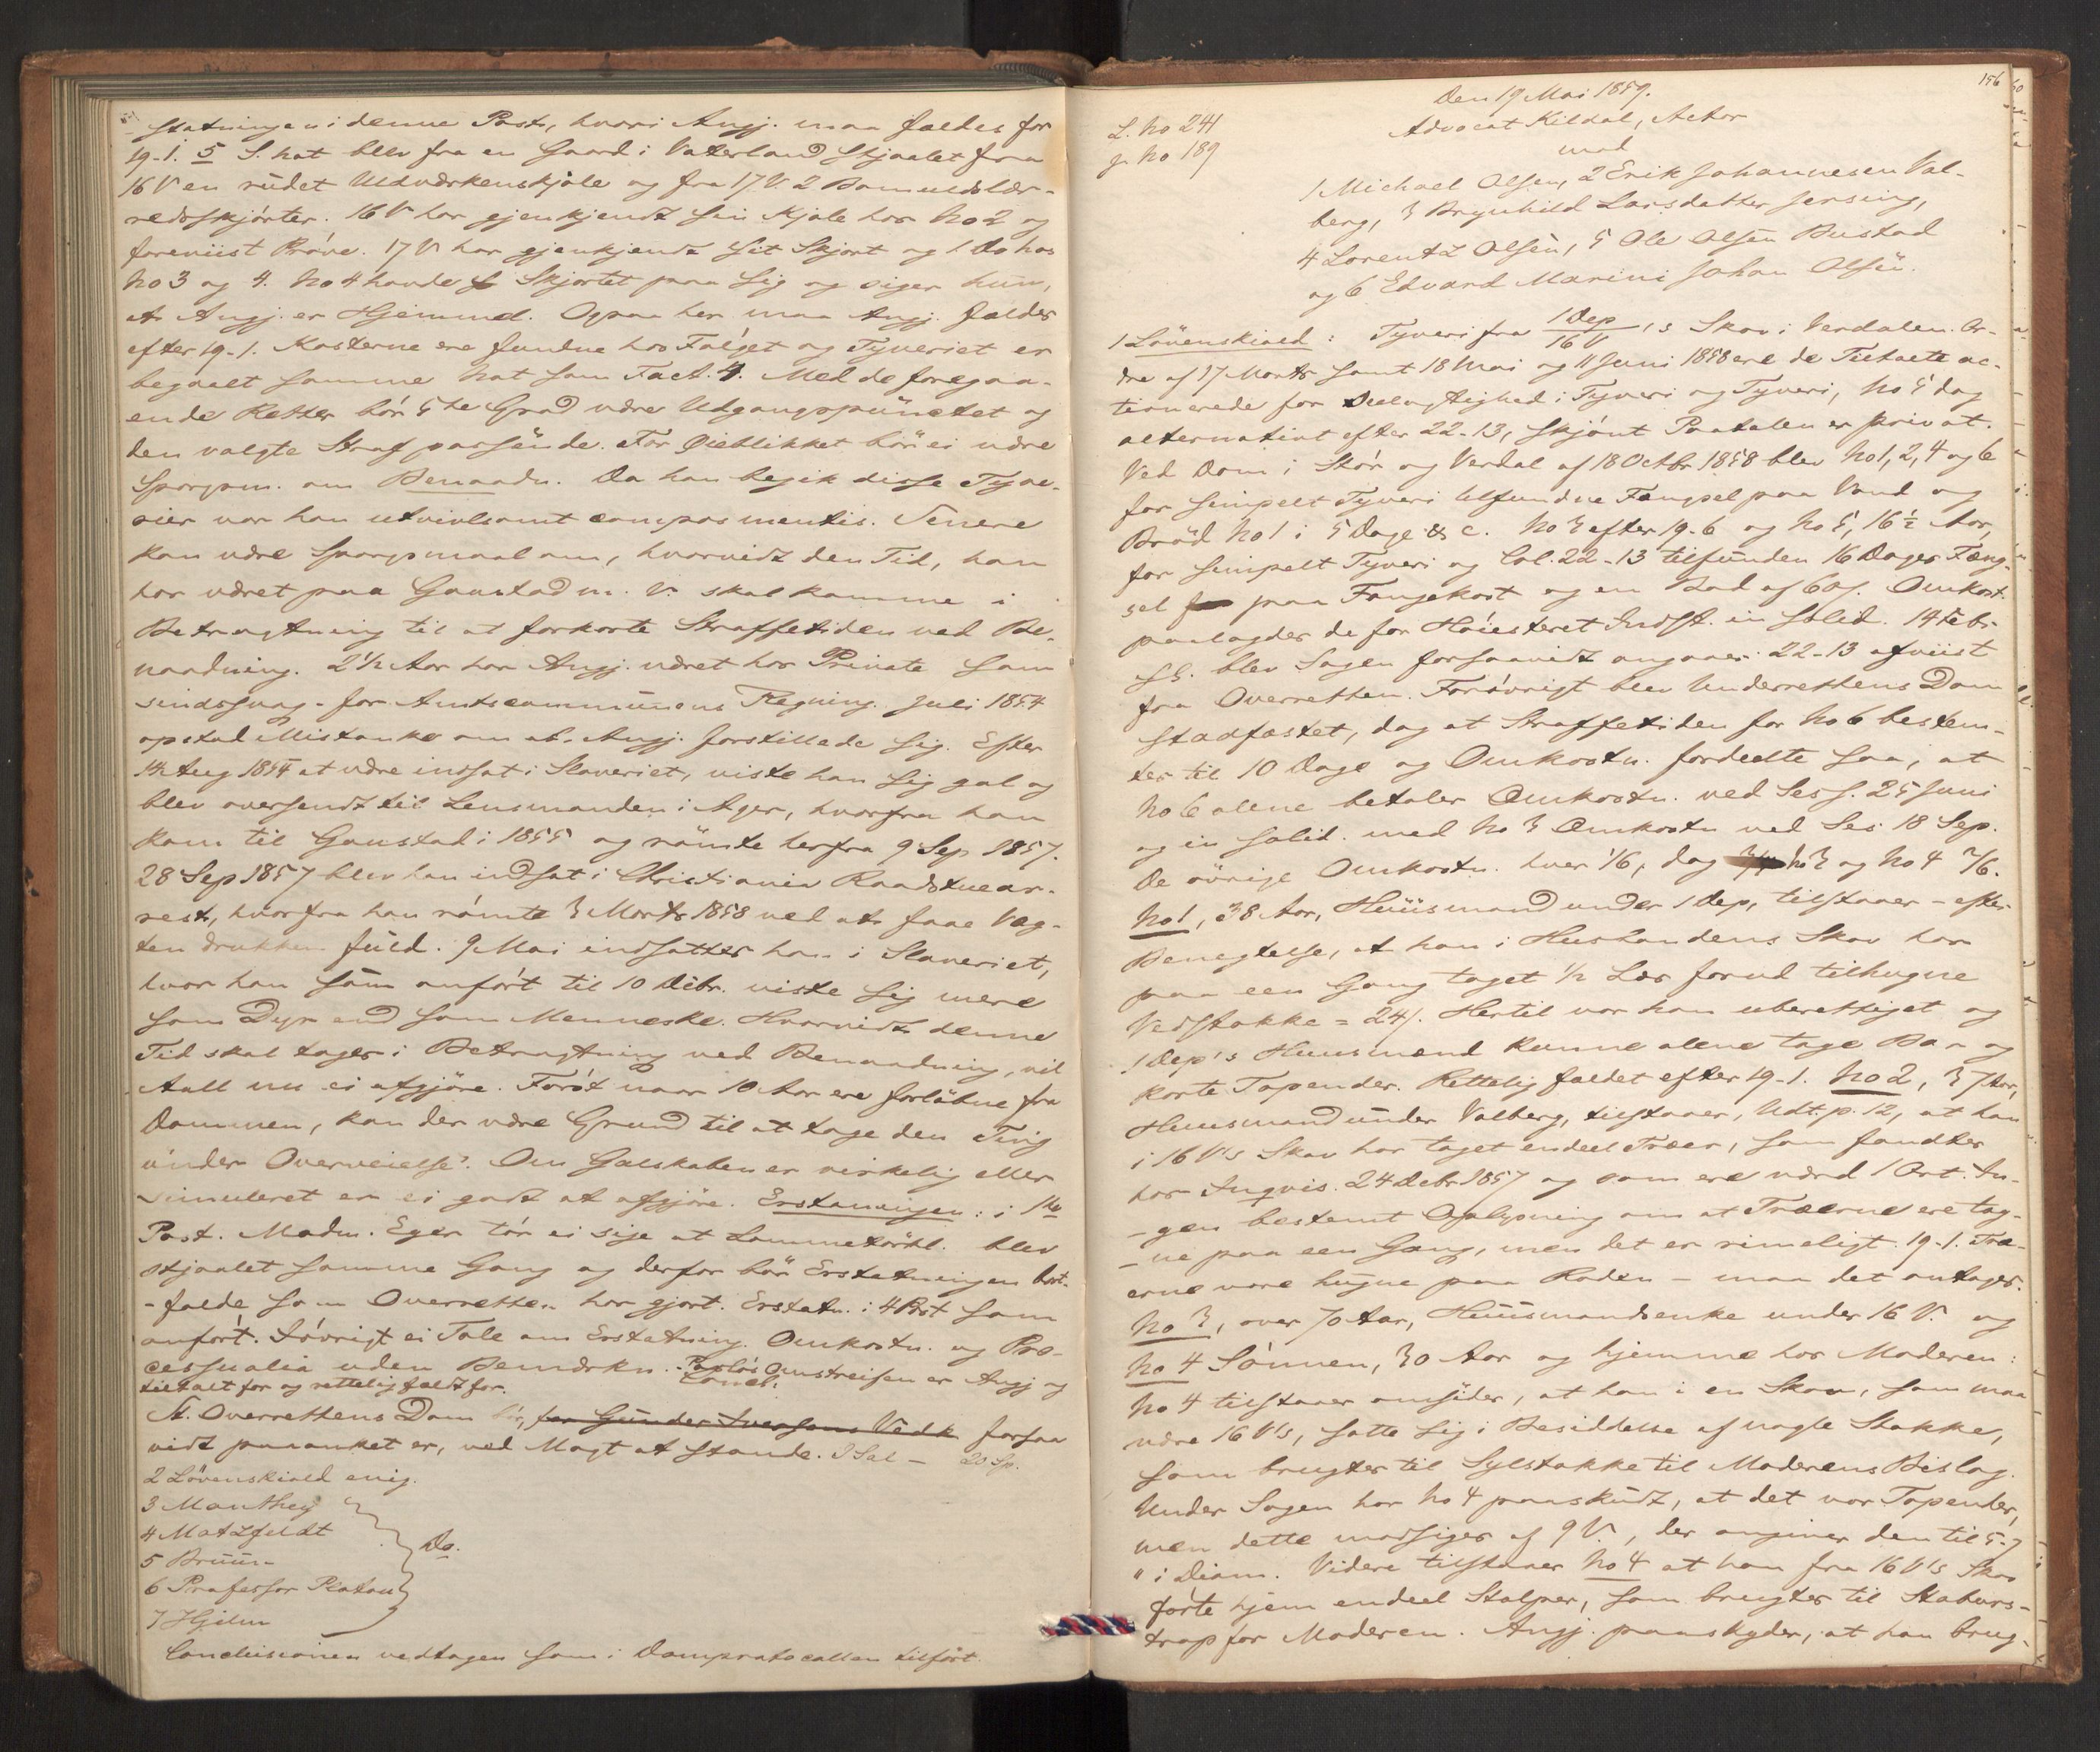 statningen i denne Post, hvori Angj. maa fældes for
19-1. 5 S. nat blev fra en Gaard i Vaterland stjaalet fra
16 V en rudet Udværkenskjole og fra 17 V. 2 Bomuldslær-
redsskjorter. 16 V har gjenkjendt sin Kjole hos No 2 og
foreviist Prøve. 17 V har gjenkjendt sit Skjort og 1 Do hos
No 3 og 4. No 4 havde Skjortet paa sig og siger hun,
at Angj. er Hjemmel. Ogsaa her maa Angj. fældes
efter 19-1. Kosterne ere fundne hos Følget og Tyveriet er
begaaet samme Nat som Fact. 4. Med de foregaa-
ende Retter bør 5te Grad være Udgangspunctet og
den valgte Straf passende. For Øieblikket bør ei være
Spørgsm. om Benaadn. Da han begik disse Tyve-
rier var han utvivlsomt compos mentis. Senere
kan være Spørgsmaal om, hvorvidt den Tid, han
har været paa Gaustad m. V. skal komme i
Betragtning til at forkorte Straffetiden ved Be-
naadning. 2 1/2 Aar har Angj. været hos Private som
sindssvag - for Amtscommunens Regning. Juli 1854
opstod Mistanke om at Angj. forstillede sig. Efter
14 Aug 1854 at være indsat i Slaveriet, viste han sig gal og
blev oversendt til Lensmanden i Ager, hvorfra han
kom til Gaustad i 1855 og rømte herfra 9 Sep 1857.
28 Sep 1857 blev han indsat i Christiania Raadstuear-
rest, hvorfra han rømte 3 Marts 1858 ved at faae Vag-
ten drukken fuld. 9 Mai indsattes han i Slaveriet,
hvor han som anført til 10 Debr. viste sig mere
som Dyr end som Menneske. Hvorvidt denne
Tid skal tages i Betragtning ved Benaadning, vil
Aall nu ei afgjøre. Først naar 10 Aar ere forløbne fra
Dommen, kan der være Grund til at tage den Ting
under Overveielse. Om Galskaben er virkelig eller
simuleret er ei godt at afgjøre. Erstatningen: i 1ste
Post. Madm. Eger tør ei sige at Lommetørkl. blev
stjaalet samme Gang og derfor bør Erstatningen bort-
-falde som Overretten har gjort. Erstatn. i 4 Post som
anført. Iøvrigt ei Tale om Erstatning. Omkostn. og Pro-
cessualia uden Bemærkn. - Omstreifen er Angj. ei
tiltalt for og rettelig fældt for. Concl:
St. Overrettens Dom bør, for Gunder Iversens Vedk forsaa
vidt paaanket er, ved Magt at stande. I Sal - 20 Sp.
2 Løvenskiold enig.
3 Manthey
4 Motzfeldt
5 Bruun
6 Professor Platou
7 Hjelm
Do.
Conclusionen vedtagen som i Domprotocollen tilført
156
L. No 241
g. No 189
Den 19 Mai 1859.
Advocat Kildal, Actor
mod
1 Michael Olsen, 2 Erik Johannesen Val-
berg, 3 Brynhild Larsdatter Jersing,
4 Lorentz Olsen, 5 Ole Olsen Bustad
og 6 Edvard Marini Johan Olsen.
1 Løvenskiold: Tyveri fra 1 Dep/16 V's Skov i Verdalen. Or-
dre af 17 Marts samt 18 Mai og 11 Juni 1858 ere de Tiltalte ac-
tionerede for Deelagtighed i Tyveri og Tyveri, No 5 dog
alternativt efter 22-13, skjønt Paatalen er privat.
Ved Dom i Stør og Verdal af 18 Octbr 1858 blev No 1, 2, 4 og 6
for simpelt Tyveri tilfundne Fængsel paa Vand og
Brød No 1 i 5 Dage &c. No 3 efter 19-6 og No 5, 16 1/2 Aar,
for simpelt Tyveri og Col. 22-13 tilfunden 16 Dages Fæng-
sel paa Fangekost og en Bod af 60 s. Omkost.
paalagdes de for Høiesteret Indst. in solid. 14 Febr.
s. blev Sagen forsaavidt angaaer 22-13 afviist
fra Overretten. Forøvrigt blev Underrettens Dom
stadfæstet, dog at Straffetiden for No 6 bestem-
tes til 10 Dage og Omkostn. fordeelte saa, at
No 6 alene betaler Omkostn. ved Sess. 25 Juni
og in solid. med No 3 Omkostn ved Ses. 18 Sep.
De øvrige Omkostn. hver 1/6, dog No 3 og No 4
No 1, 38 Aar, Huusmand under 1 Dep, tilstaaer - efter
Benegtelse, at han i Husbondens Skov har
paa een Gang taget 1/2 Læs forud tilhugne
Vedstokke = 24 s. Hertil var han uberettiget og
1 Dep's Huusmænd kunne alene tage Bar og
korte Topender. Rettelig fældet efter 19-1. No 2, 37 Aar,
Huusmand under Valberg, tilstaaer, Udt. p. 12, at han
i 16 V's Skov har taget endeel Træer, som fandtes
hos Inqvis. 24 Debr 1857 og som ere værd 1 Ort. In-
-gen bestemt Oplysning om at Træerne ere tag-
-ne paa een Gang, men det er rimeligt. 19-1. Træ-
erne vare hugne paa Roden - maa det antages.
No 3, over 70 Aar, Huusmandsenke under 16 V. og
No 4 Sønnen, 30 Aar og hjemme hos Moderen:
No 4 tilstaaer omsider, at han i en Skov, som maa
være 16 V's, satte sig i Besiddelse af nogle Stokke,
som brugtes til Sylstokke til Moderens Bislag.
Under Sagen har No 4 paaskudt, at det var Topender,
men dette modsiges af 9 V., der angiver den til 5-7
" i Diam. Videre tilstaaer No 4 at han fra 16 V's Skov
førte hjem endeel Stolper, som brugtes til Staburs-
trap for Moderen. Angj. paaskyder, at han brug-